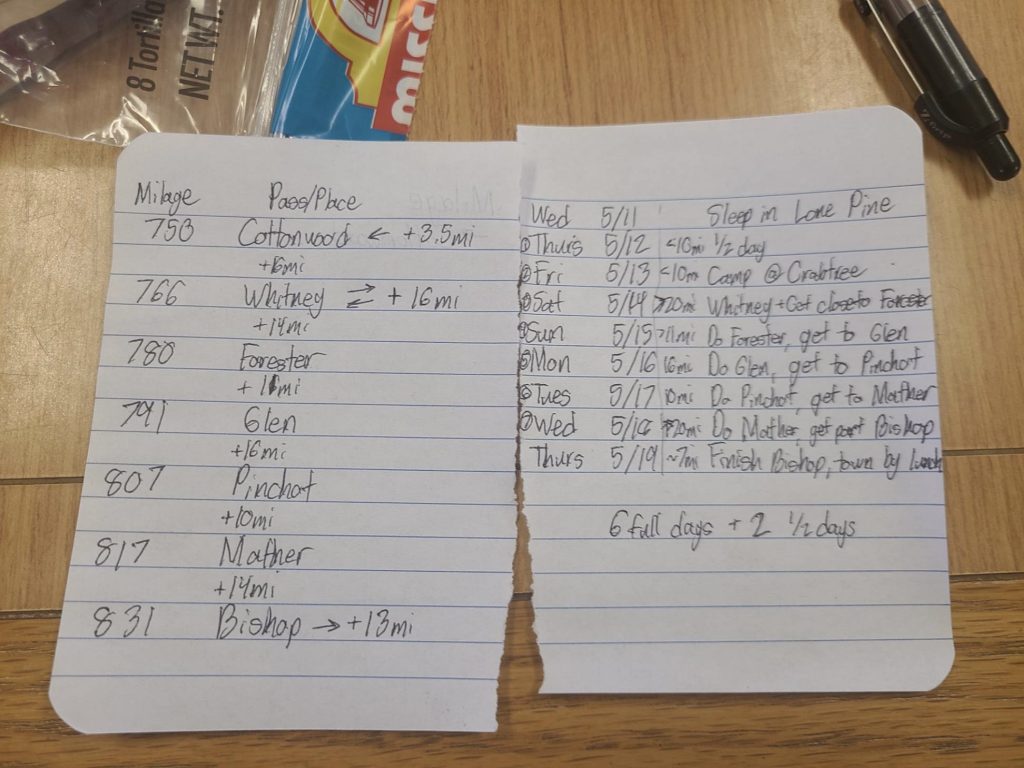 8 Tortilla
NET WT.
MISS
Milage Pass/Place
750 Cottonwood ← +3.5mi
+16mi
766 Whitney ⇄ +16mi
+14mi
780 Forester
+11mi
791 Glen
+16mi
807 Pinchot
+10mi
817 Mather
+14mi
831 Bishop → +13mi
Wed 5/11 Sleep in Lone Pine
① Thurs 5/12 <10mi 1/2 day
② Fri 5/13 <10m Camp @ Crabtree
③ Sat 5/14 >20mi Whitney + Get close to Forester
④ Sun 5/15 >11mi Do Forester, get to Glen
⑤ Mon 5/16 16mi Do Glen, get to Pinchot
⑥ Tues 5/17 10mi Do Pinchot, get to Mather
⑦ Wed 5/18 >20mi Do Mather, get past Bishop
Thurs 5/19 ~7mi Finish Bishop, town by lunch
6 full days + 2 1/2 days